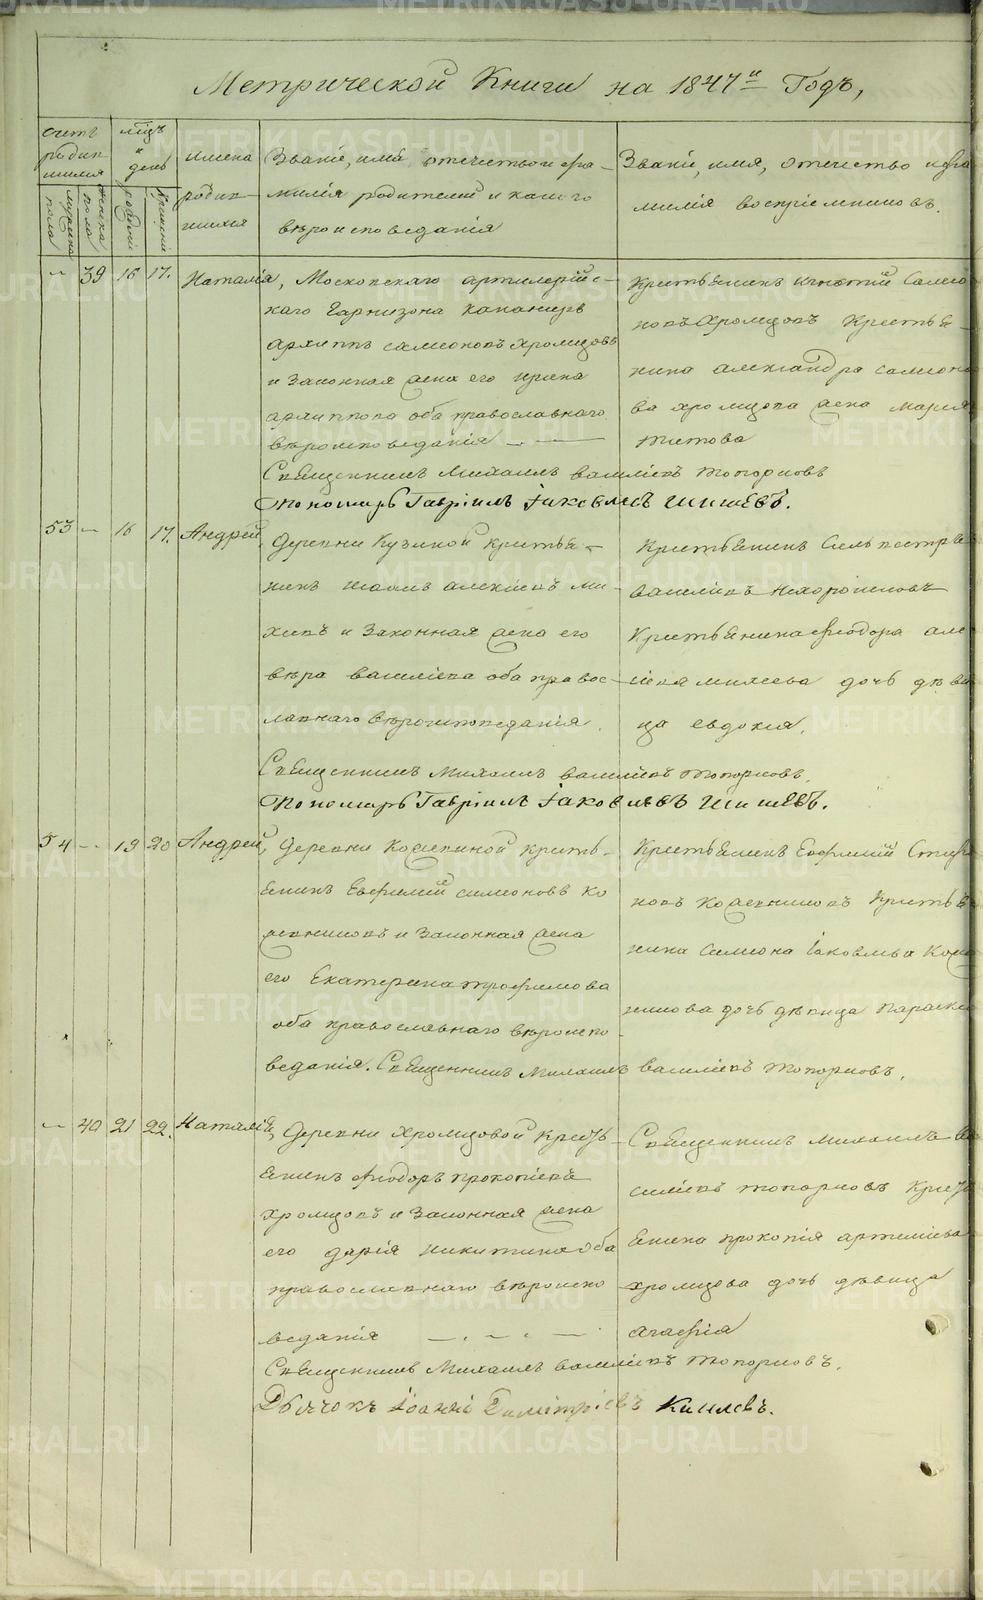 Метрической Книги на 1847й Годъ,
счетъ родившихся
мужска пола
женска пола
мцъ и день
рожденія
крещенія
имена родившихся
Званіе, имя, отечество и фамилія родителей и какого вѣроисповеданія
Званіе, имя, отечество и фамилія воспріемниковъ.
— 39 16 17. Наталія,
Московскаго артилерійскаго
Гарнизона канониръ
архиппъ симеоновъ Хромцовъ
и Законная жена его ирина
архиппова оба православнаго
вѣроисповеданія
Крестьянинъ игнатий Симеоновъ
Хромцовъ Крестьянина
александра симеонова
хромцова жена Марія
титова
Священникъ Михаилъ василіевъ топорковъ
Пономарь Гавріилъ Іаковлевъ Шишевъ.
53 — 16 17. Андрей,
Деревни Кузиной крестьянинъ
іоаннъ алексіевъ михевъ
и Законная жена его
вѣра василіева оба православнаго
вѣроисповеданія.
Крестьянинъ Сильвестръ
василіевъ Нехорошковъ
Крестьянина феодора алексіева
михеева дочь дѣвица
евдокія.
Священникъ Михаилъ василіевъ топорковъ.
Пономарь Гавріилъ Іаковлевъ Шишевъ.
54 — 19 20 Андрей,
Деревни Кожевиной крестьянинъ
Евфимий симеоновъ Кожевниковъ
и Законная жена
его Екатерина трофимова
оба православнаго вѣроисповедания.
Крестьянинъ Евфимий
Кожевниковъ Крестьянина
Симеона Іаковлева
дочь дѣвица
Священникъ Михаилъ василіевъ топорковъ.
— 40 21 22. Наталія,
Деревни Хромцовой Крестьянинъ
феодоръ прокопіевъ
хромцовъ и Законная жена
его дарія никитина оба
православнаго вѣроисповеданія
Священникъ михаилъ василіевъ
топорковъ
прокопія артеміева
хромцова дочь дѣвица
агафія
Священникъ Михаилъ василіевъ топорковъ.
Дьячокъ Іоаннъ Димітріевъ Киселевъ.
METRIKI.GASO-URAL.RU